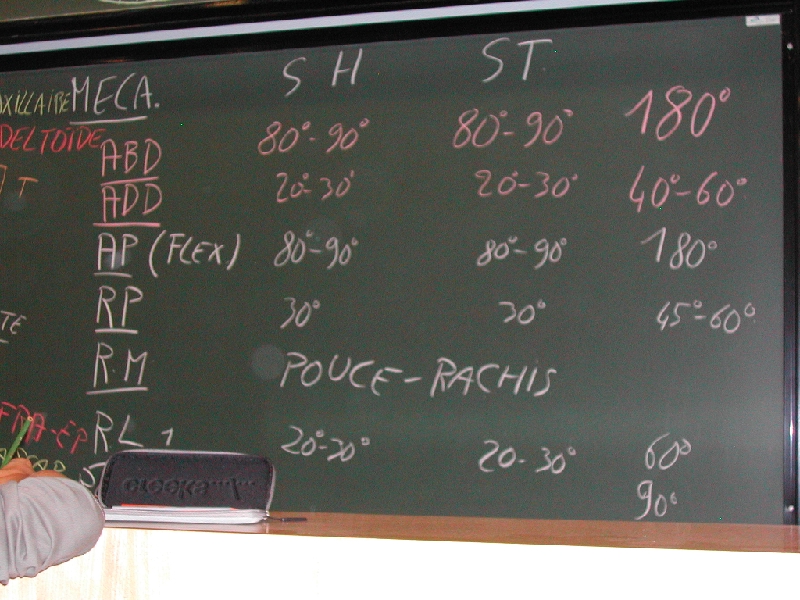 MECA. SH ST.
DELTOÏDE
ABD 80°-90° 80°-90° 180°
ADD 20°-30° 20°-30° 40°-60°
AP (FLEX) 80°-90° 80°-90° 180°
RP 30° 30° 45°-60°
RM POUCE-RACHIS
RL 1 20°-30° 20-30° 60°
90°